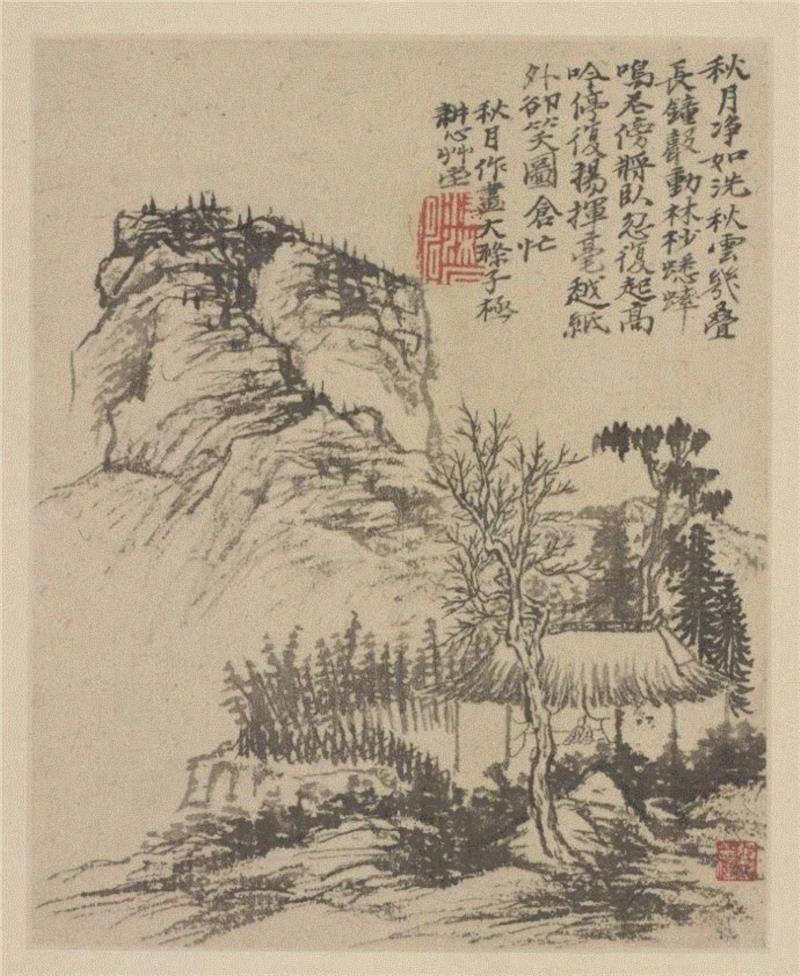 秋月净如洗秋雲幾叠
長鐘聲動林杪蟋蟀
鳴卷傍將臥忽復起高
吟停復揚揮毫越紙
外卻笑圖倉忙
秋月作畫大滌子極
耕心艸堂